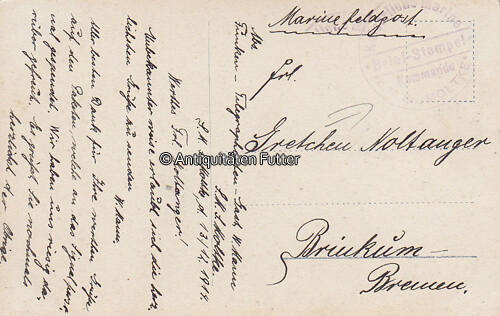 Marinefeldpost.
Kaiserliche Marine
* Brief-Stempel *
Kommando
MOLTKE
Frl.
Gretchen Noltanger
Brinkum-
Bremen.
Abs
Funken-Telegraphisten-Gast, W. Mann
S.M.S. Moltke
d. 13/12. 1914.
Wertes Frl. Noltanger!
Unbekannter weise erlaubt sich die herz-
lichsten Grüße zu senden
W. Mann.
Allerbesten Dank für Ihre werten Grüße
auf den Paketen, welche an das Signalpers.
Wir haben uns riesig da-
rüber gefreut. Es grüßt Sie nochmals
herzlichst der Obige.
© Antiquitäten Futter